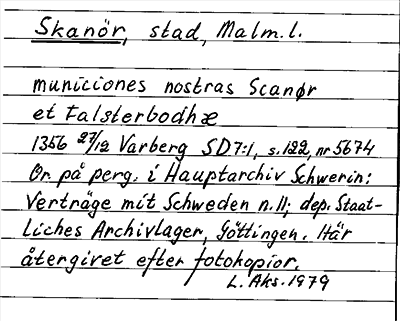 Skanör, stad, Malm.l.
municiones nostras Scanør
et Falsterbodhæ
1356 27/12 Varberg SD7:1, s.122, nr 5674
Or. på perg. i Hauptarchiv Schwerin:
Verträge mit Schweden n.11; dep. Staat-
liches Archivlager, Göttingen. Här
återgivet efter fotokopior.
L. Aks. 1979